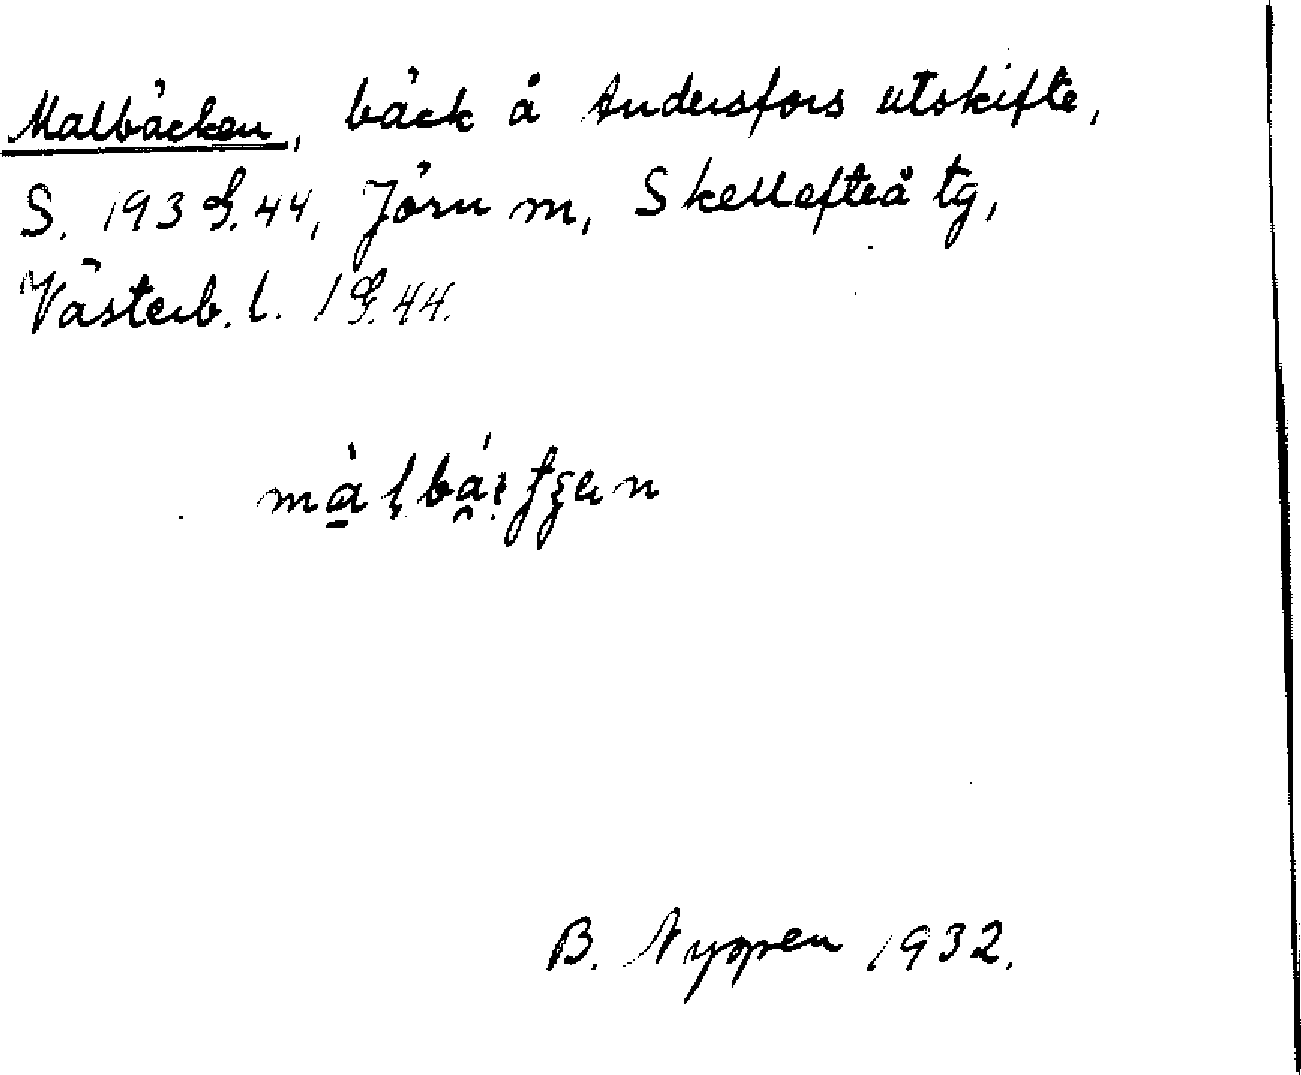 Malbäcken, bäck å Andersfors utskifte,
S. 193 G. 44, Jörn m, Skellefteå tg,
Västerb. l. 1 G. 44.
B. Nyppen 1932.